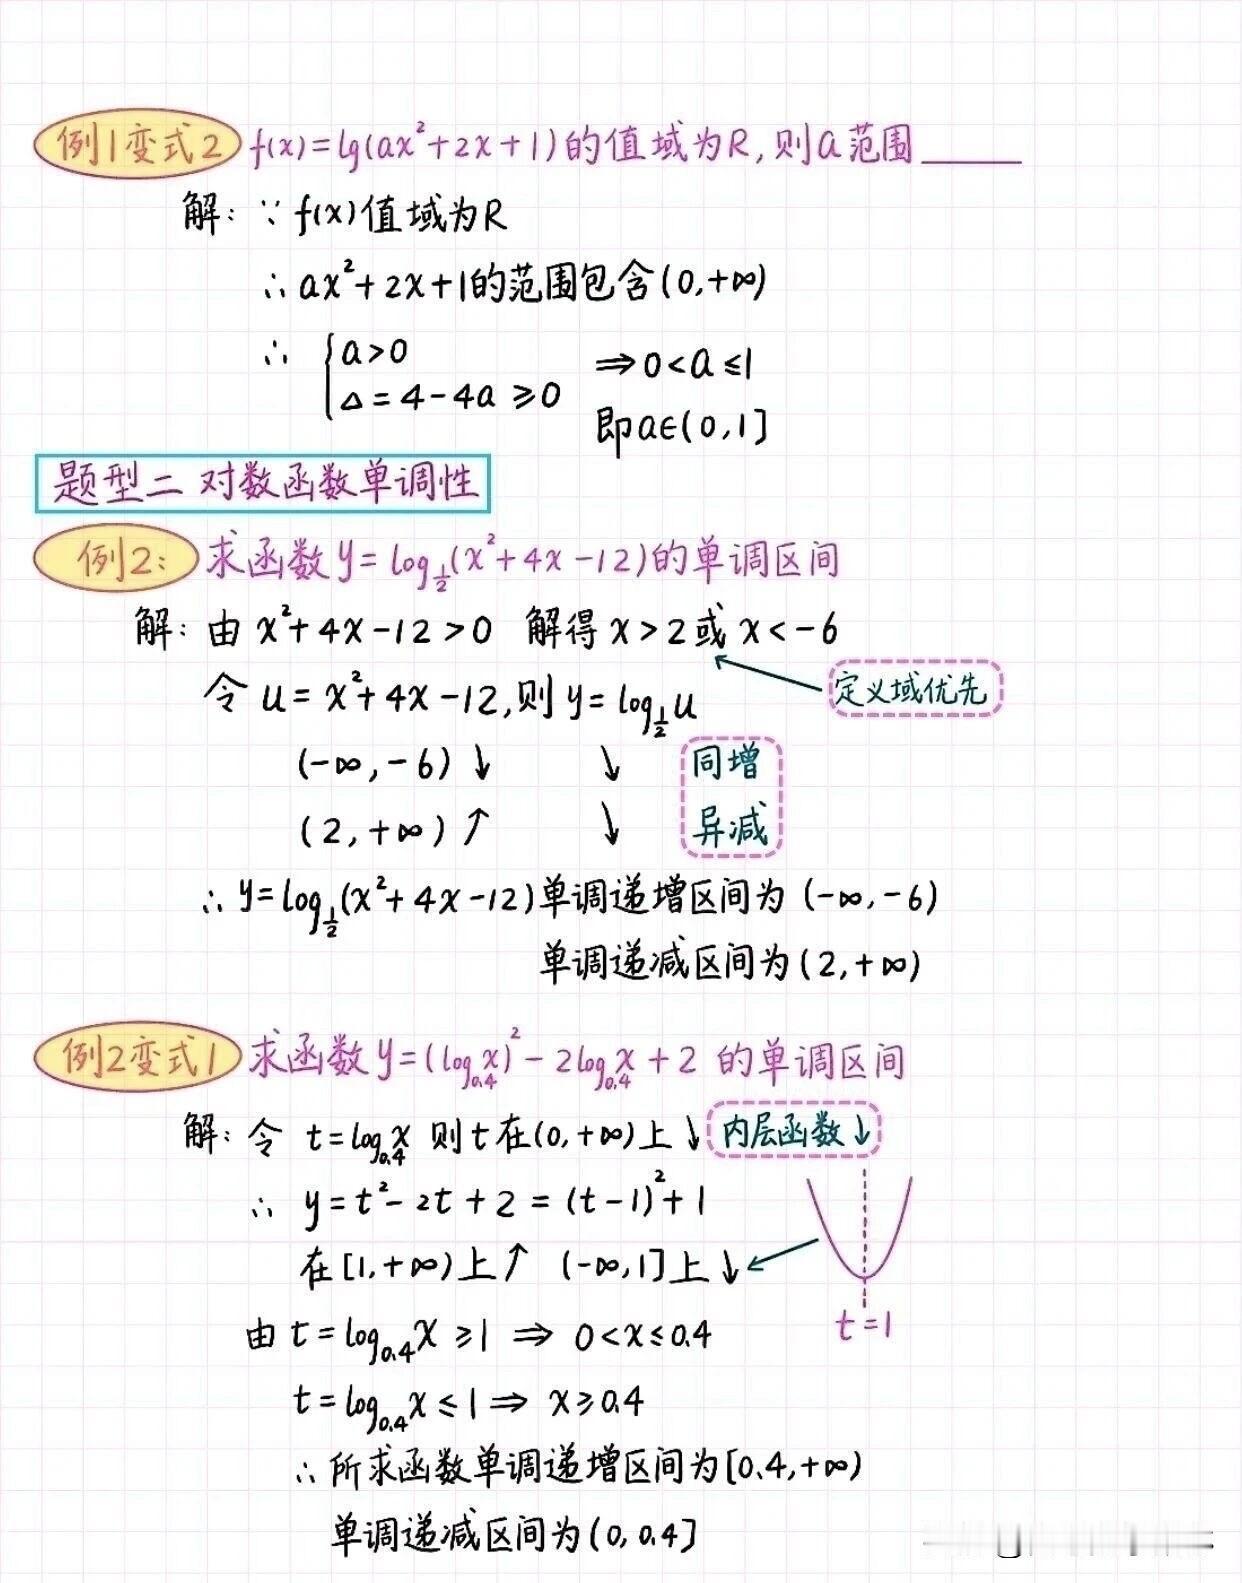 例1变式2 f(x)=lg(ax²+2x+1)的值域为R,则a范围______
解: ∵ f(x)值域为R
∴ ax²+2x+1的范围包含(0,+∞)
∴ { a>0 ⇒0<a≤1
Δ=4-4a≥0
即a∈(0,1]
题型二 对数函数单调性
例2: 求函数y=log_{1/2}(x²+4x-12)的单调区间
解: 由x²+4x-12>0 解得x>2或x<-6
定义域优先
令u=x²+4x-12,则y=log_{1/2}u
(-∞,-6)↓ ↘ 同增
(2,+∞)↑ ↘ 异减
∴ y=log_{1/2}(x²+4x-12)单调递增区间为(-∞,-6)
单调递减区间为(2,+∞)
例2变式1 求函数y=(log_{0.4}x)²-2log_{0.4}x+2 的单调区间
解: 令 t=log_{0.4}x 则t在(0,+∞)上↓ 内层函数↓
∴ y=t²-2t+2=(t-1)²+1
在[1,+∞)上↑ (-∞,1]上↓
t=1
由t=log_{0.4}x≥1 ⇒ 0<x≤0.4
t=log_{0.4}x≤1 ⇒ x≥0.4
∴所求函数单调递增区间为[0.4,+∞)
单调递减区间为(0,0.4]